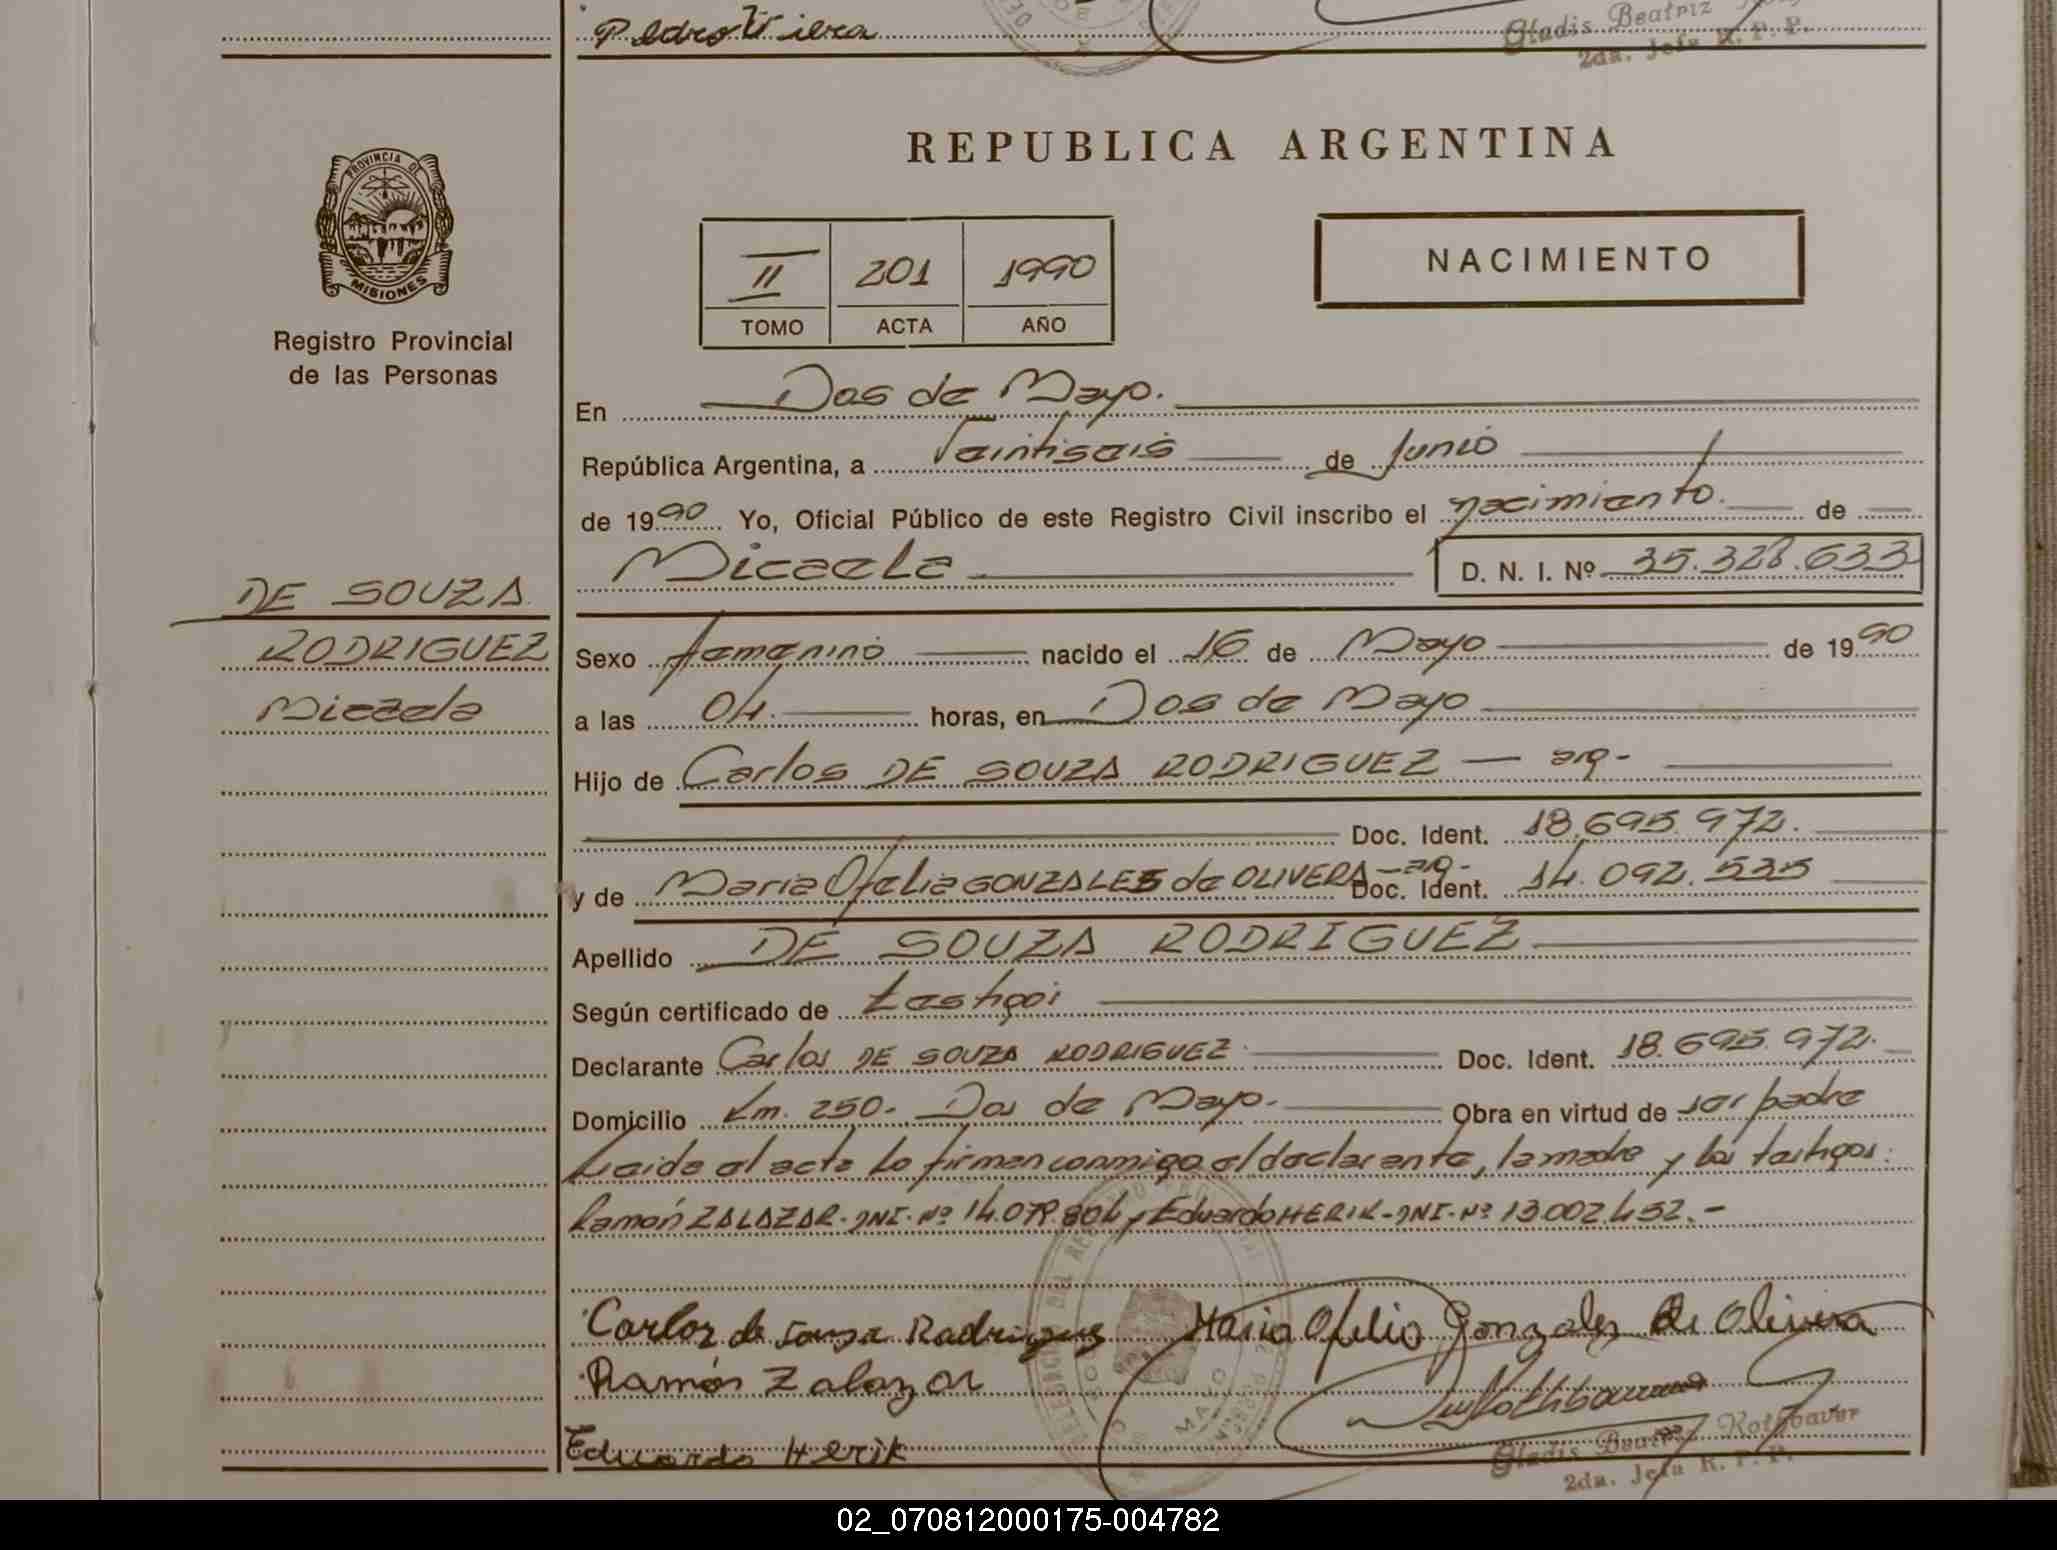 Pedro Viera
Gladis Beatriz
2da. Jefa R. P. P.
PROVINCIA DE
MISIONES
Registro Provincial
de las Personas
DE SOUZA
RODRIGUEZ
Micaela
REPUBLICA ARGENTINA
II 201 1990
TOMO ACTA AÑO
NACIMIENTO
En Dos de Mayo.
República Argentina, a Veintiseis de Junio
de 1990 Yo, Oficial Público de este Registro Civil inscribo el nacimiento. de
Micaela D. N. I. Nº 35.328.633
Sexo femenino nacido el 16 de Mayo de 1990
a las 04. horas, en Dos de Mayo
Hijo de Carlos DE SOUZA RODRIGUEZ — arg-
Doc. Ident. 18.695.972.
y de Maria Ofelia GONZALES de OLIVERA - arg- Doc. Ident. 14.092.535
Apellido DE SOUZA RODRIGUEZ
Según certificado de testigoi
Declarante Carlos DE SOUZA RODRIGUEZ. Doc. Ident. 18.695.972.
Domicilio Km. 250. Dos de Mayo. Obra en virtud de ser padre
Leida el acta lo firman conmigo el declarante, la madre y los testigos:
Ramón ZALAZAR. DNI. Nº 14.079.804 y Eduardo HERIK - DNI. Nº 13.002.452.-
Carlos de Souza Radriguez Maria Ofelia Gonzales de Olivera
Ramón Zalazar
Rothbauer
Eduardo Herik
Gladis Beatriz Rothbauer
2da. Jefa R. P. P.
02_070812000175-004782